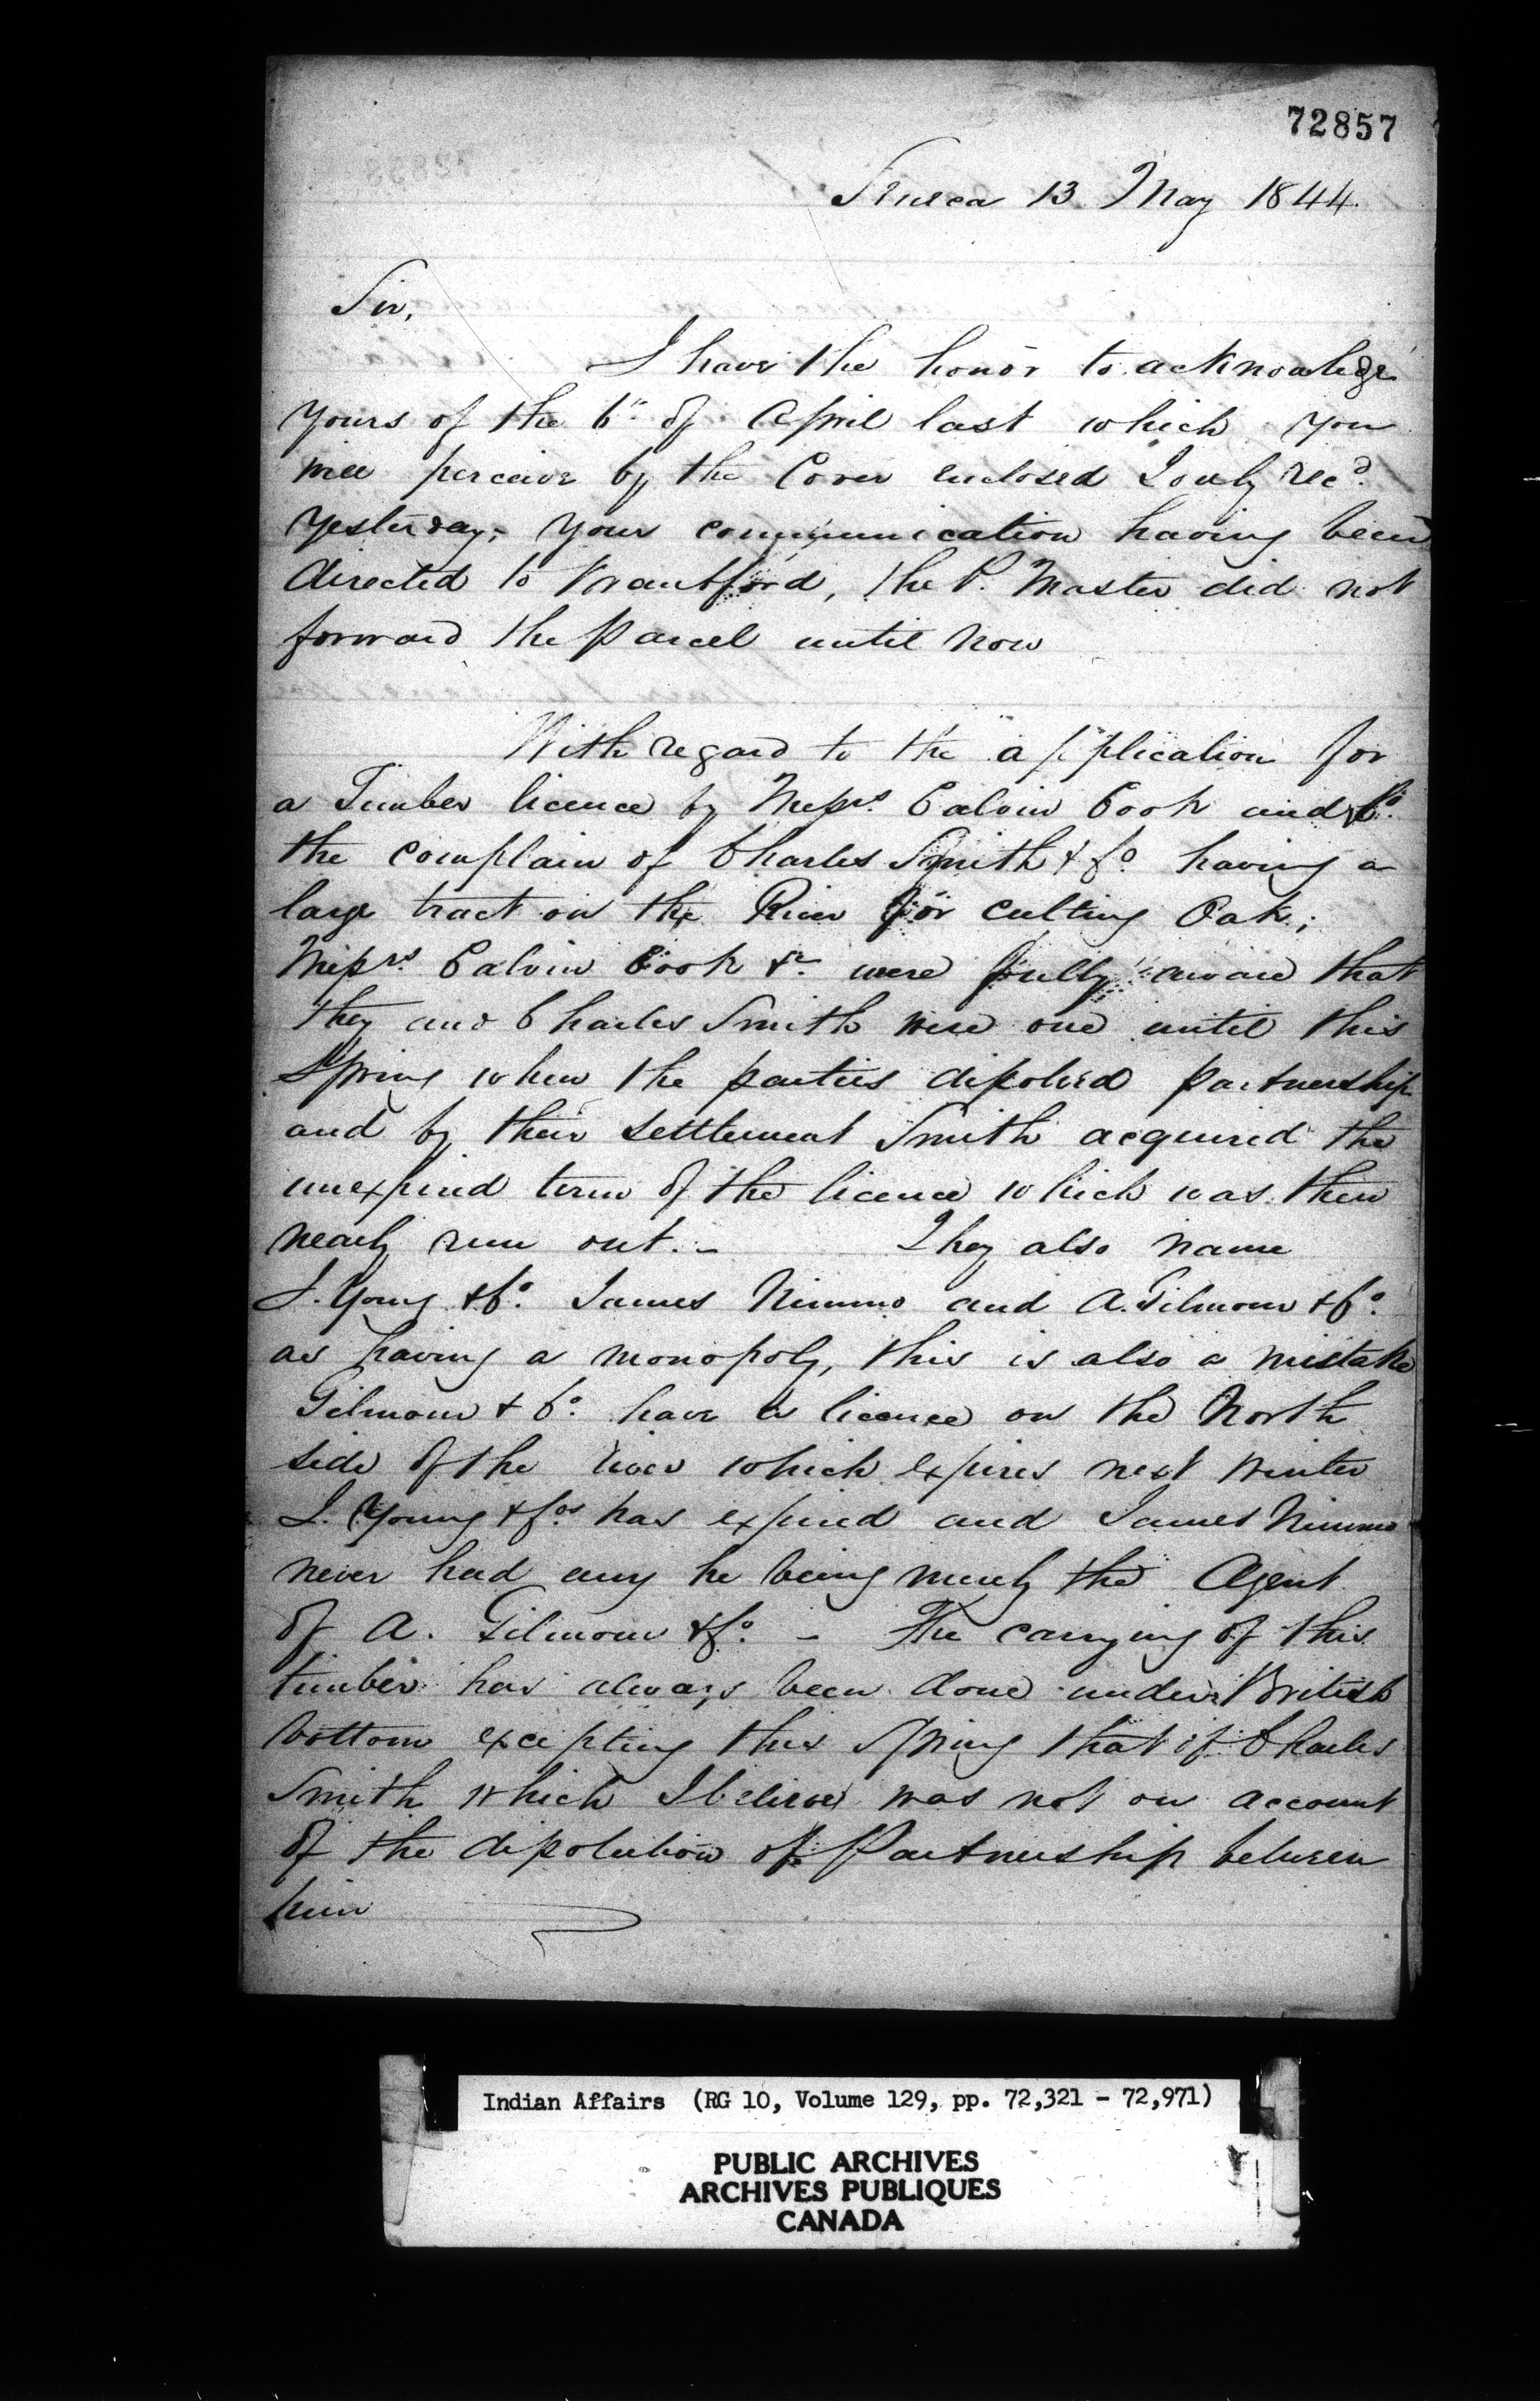 72857
Seneca 13 May 1844.
Sir,
I have the honor to acknowledge
yours of the 6th of April last which you
will perceive by the Cover enclosed I only recd.
yesterday; your communication having been
directed to Brantford, the P. Master did not
forward the parcel until now
With regard to the application for
a Timber licence by Messrs. Calvin Cook and Co.
the complain of Charles Smith & Co. having a
large tract on the River for cutting Oak;
Messrs. Calvin Cook &c. were fully aware that
they and Charles Smith were one until this
Spring when the parties dissolved partnership
and by their settlement Smith acquired the
unexpired term of the licence which was then
nearly run out. - They also name
J. Young & Co. James Nimmo and A. Gilmour & Co.
as having a monopoly, this is also a mistake
Gilmour & Co. have a licence on the North
side of the river which expires next winter
J. Young & Cos. has expired and James Nimmo
never had any he being merely the Agent
of A. Gilmour & Co. - The carrying of this
timber has always been done under British
bottom excepting this Spring that of Charles
Smith which I believe was not on account
of the dissolution of Partnership between
him
Indian Affairs (RG 10, Volume 129, pp. 72,321 - 72,971)
PUBLIC ARCHIVES
ARCHIVES PUBLIQUES
CANADA